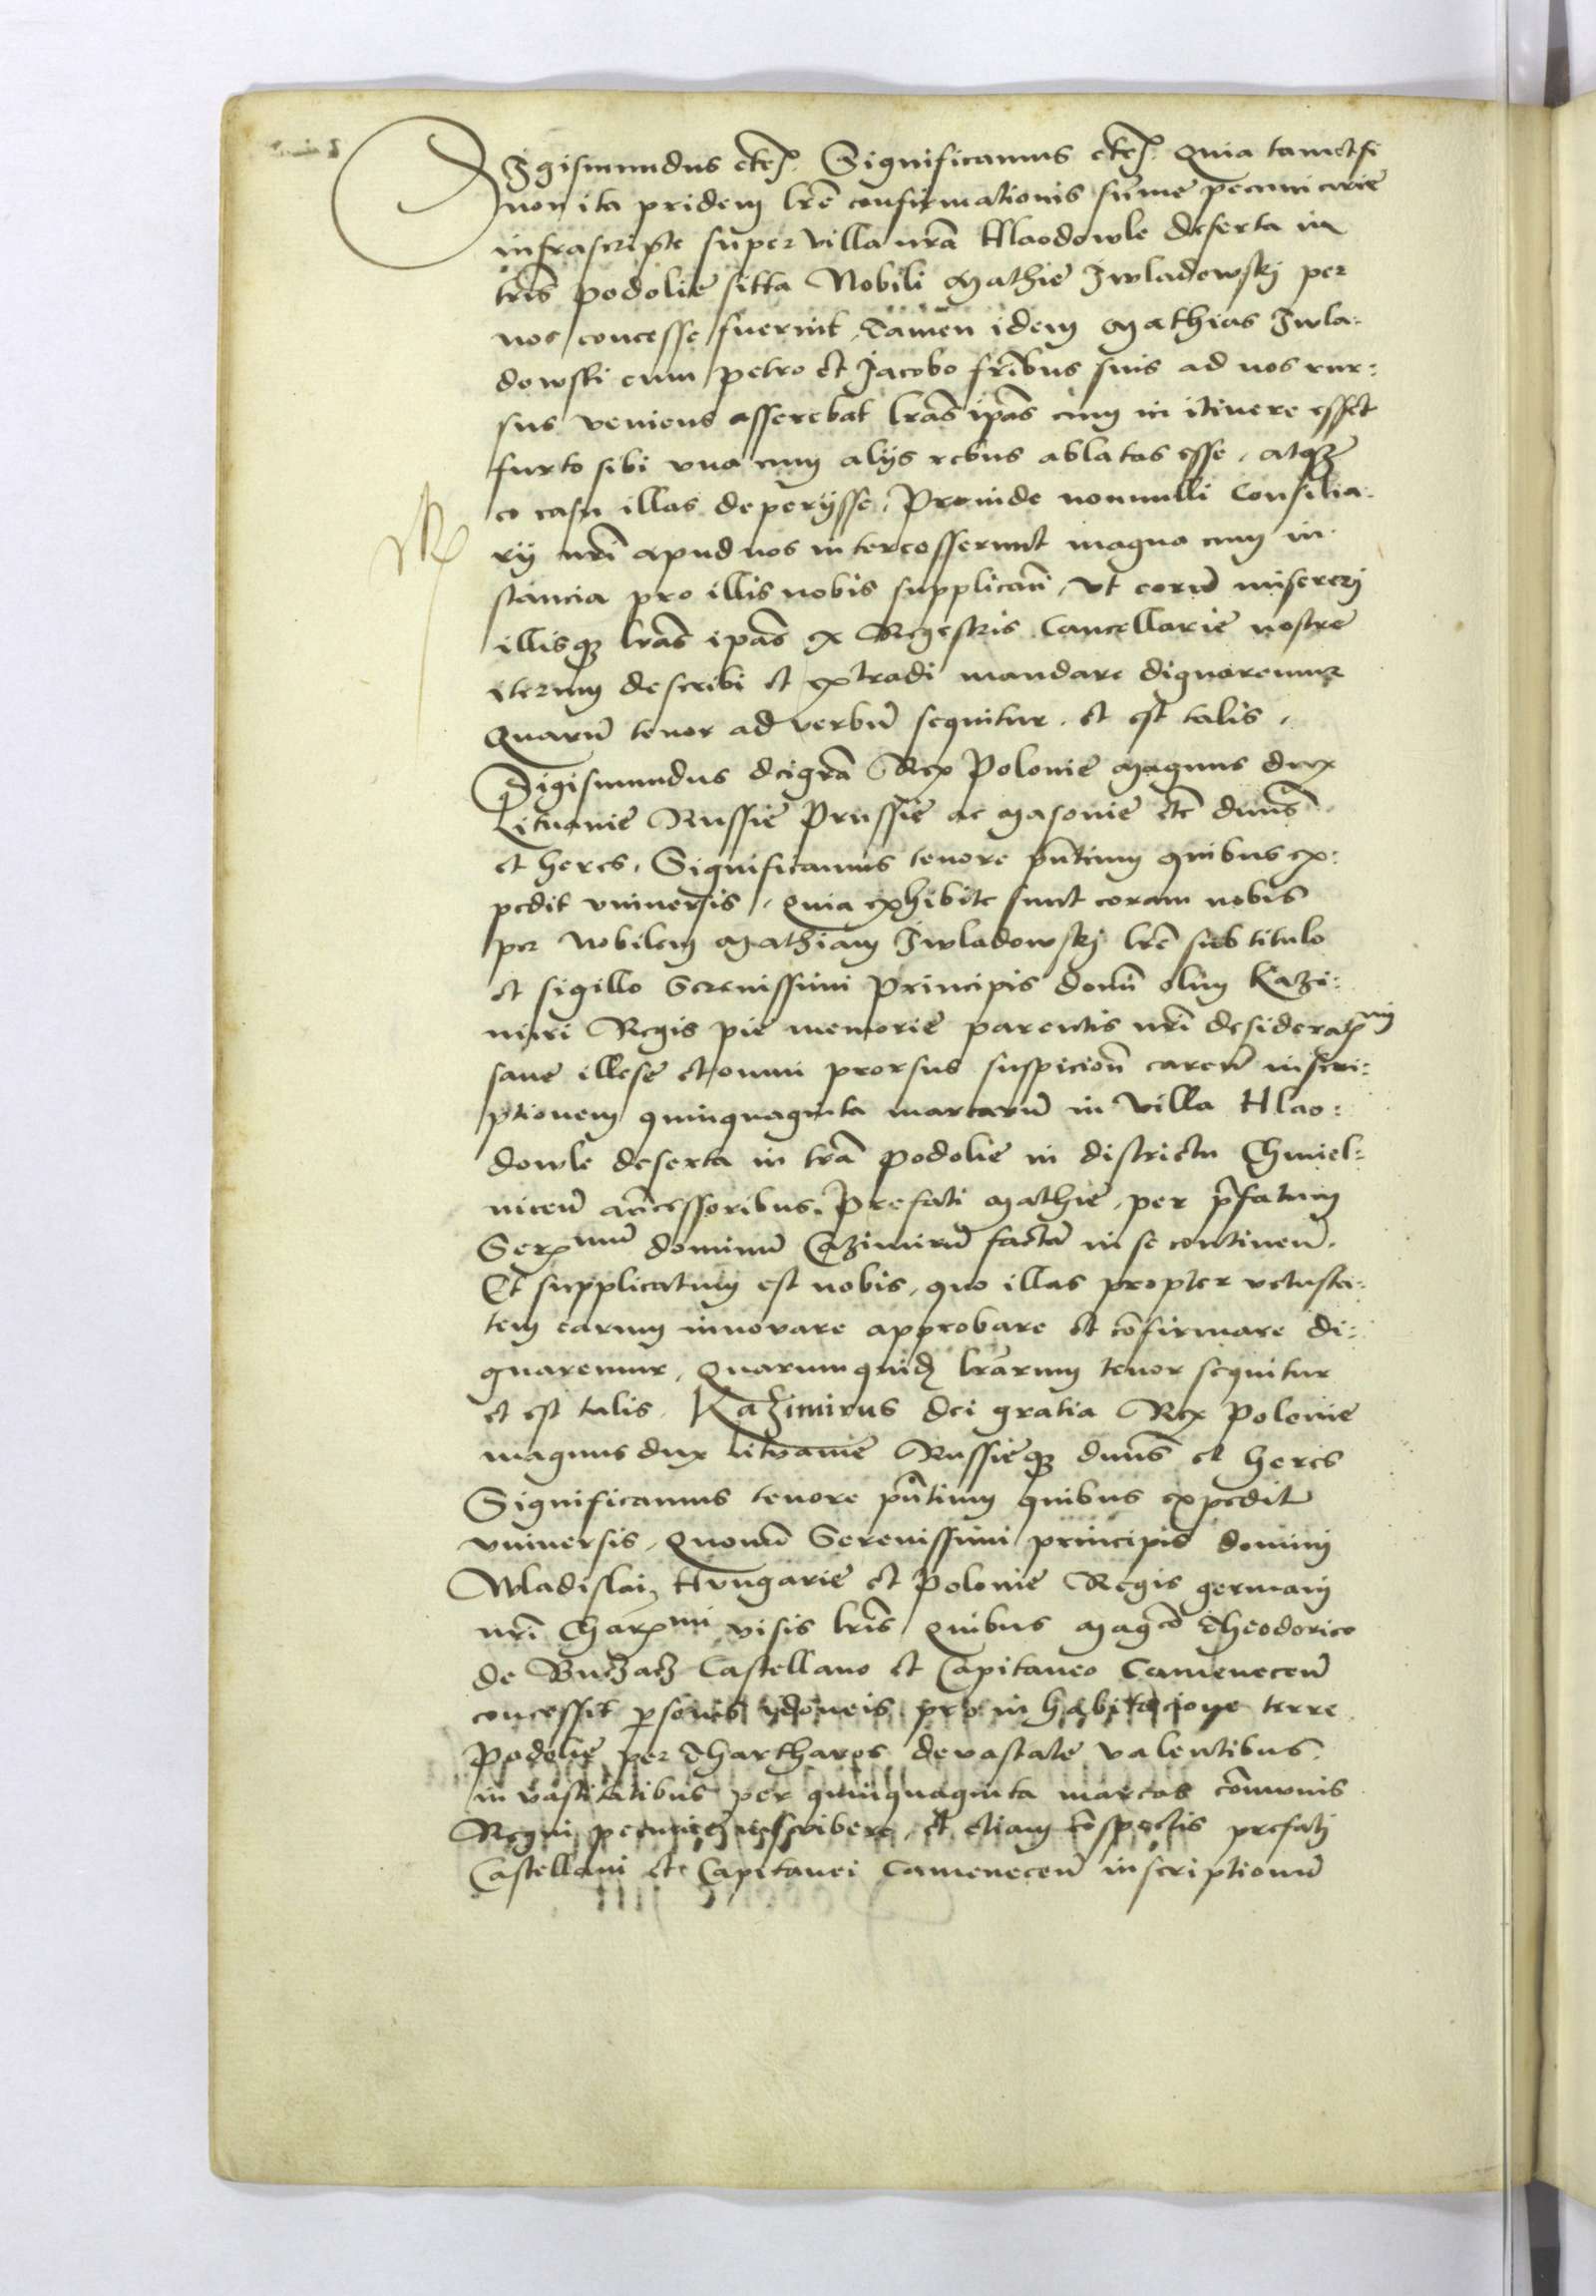 Sigismundus etc. Significamus etc. quia tametsi
non ita pridem lr̃e confirmationis sum̃e pecuniarie
infrascripte super villa nr̃a Hlaodowle deserta in
tr̃is podolie sitta Nobili Mathie Iwladowskj per
nos concesse fuerint, Tamen idem Mathias Iwla:
dowski cum petro et Jacobo fr̃ibus suis ad nos rur:
sus veniens asserebat lr̃as ip̃as cum in itinere esset
furto sibi vna cum alijs rebus ablatas esse, atq₃
eo casu illas deperijsse, Proinde nonnulli Consilia:
rij nr̃i apud nos intercesserunt magna cum in
stancia pro illis nobis supplican̄, vt eorū misererj
illisq₃ lr̃as ip̃as ex Regestris Cancellarie nostre
iterum describi et extradi mandare dignaremur
Quarū tenor ad verbū sequitur, et est talis,
Sigismundus dei gr̃a Rex Polonie Magnus dux
Lituanie Russie Prussie ac Masouie etc dn̄us
et heres, Significamus tenore pn̄tium quibus ex:
pedit vniuersis, quia exhibite sunt coram nobis
per Nobilem Mathiam Iwladowskj lr̃e sub titulo
et sigillo Serenissimi Principis domī olim Kazi:
miri Regis pie memorie parentis nr̃i desideratmi
sane illese et omni prorsus suspicion̄ caren̄ inscri:
ptionem quinquaginta marcarū in villa Hlao:
dowle deserta in tr̃a podolie in districtu Chmiel:
nicen̄ an̄cessoribus, Prefati Mathie, per p̃fatum
Serxmum dominū Cazimirū factā in se continen̄.
Et supplicatum est nobis, quo illas propter vetusta:
tem earum innouare approbare et cōfirmare di:
gnaremur, quarumquid lr̃arum tenor sequitur
et est talis, Kazimirus dei gratia Rex Polonie
magnus dux lituanie Russieq₃ dn̄us et heres
Significamus tenore pn̄tium quibus expedit
vniuersis, Quomō Serenissimi principis dominj
Wladislai, Hungarie et Polonie Regis germanj
nr̃i Charxmi visis lr̃is quibus Magco Theodorico
de Buczacz Castellano et Capitaneo Camenecen̄
concessit p̲sonis ydoneis pro inhabitacione terre
Podolie per Thartharos deuastate valentibus
in vastitatibus per quinquaginta marcas cōmunis
Regni pecunie inscribere, et etiam cōspectis prefatj
Castellani et Capitanei Camenecen̄ inscriptionū